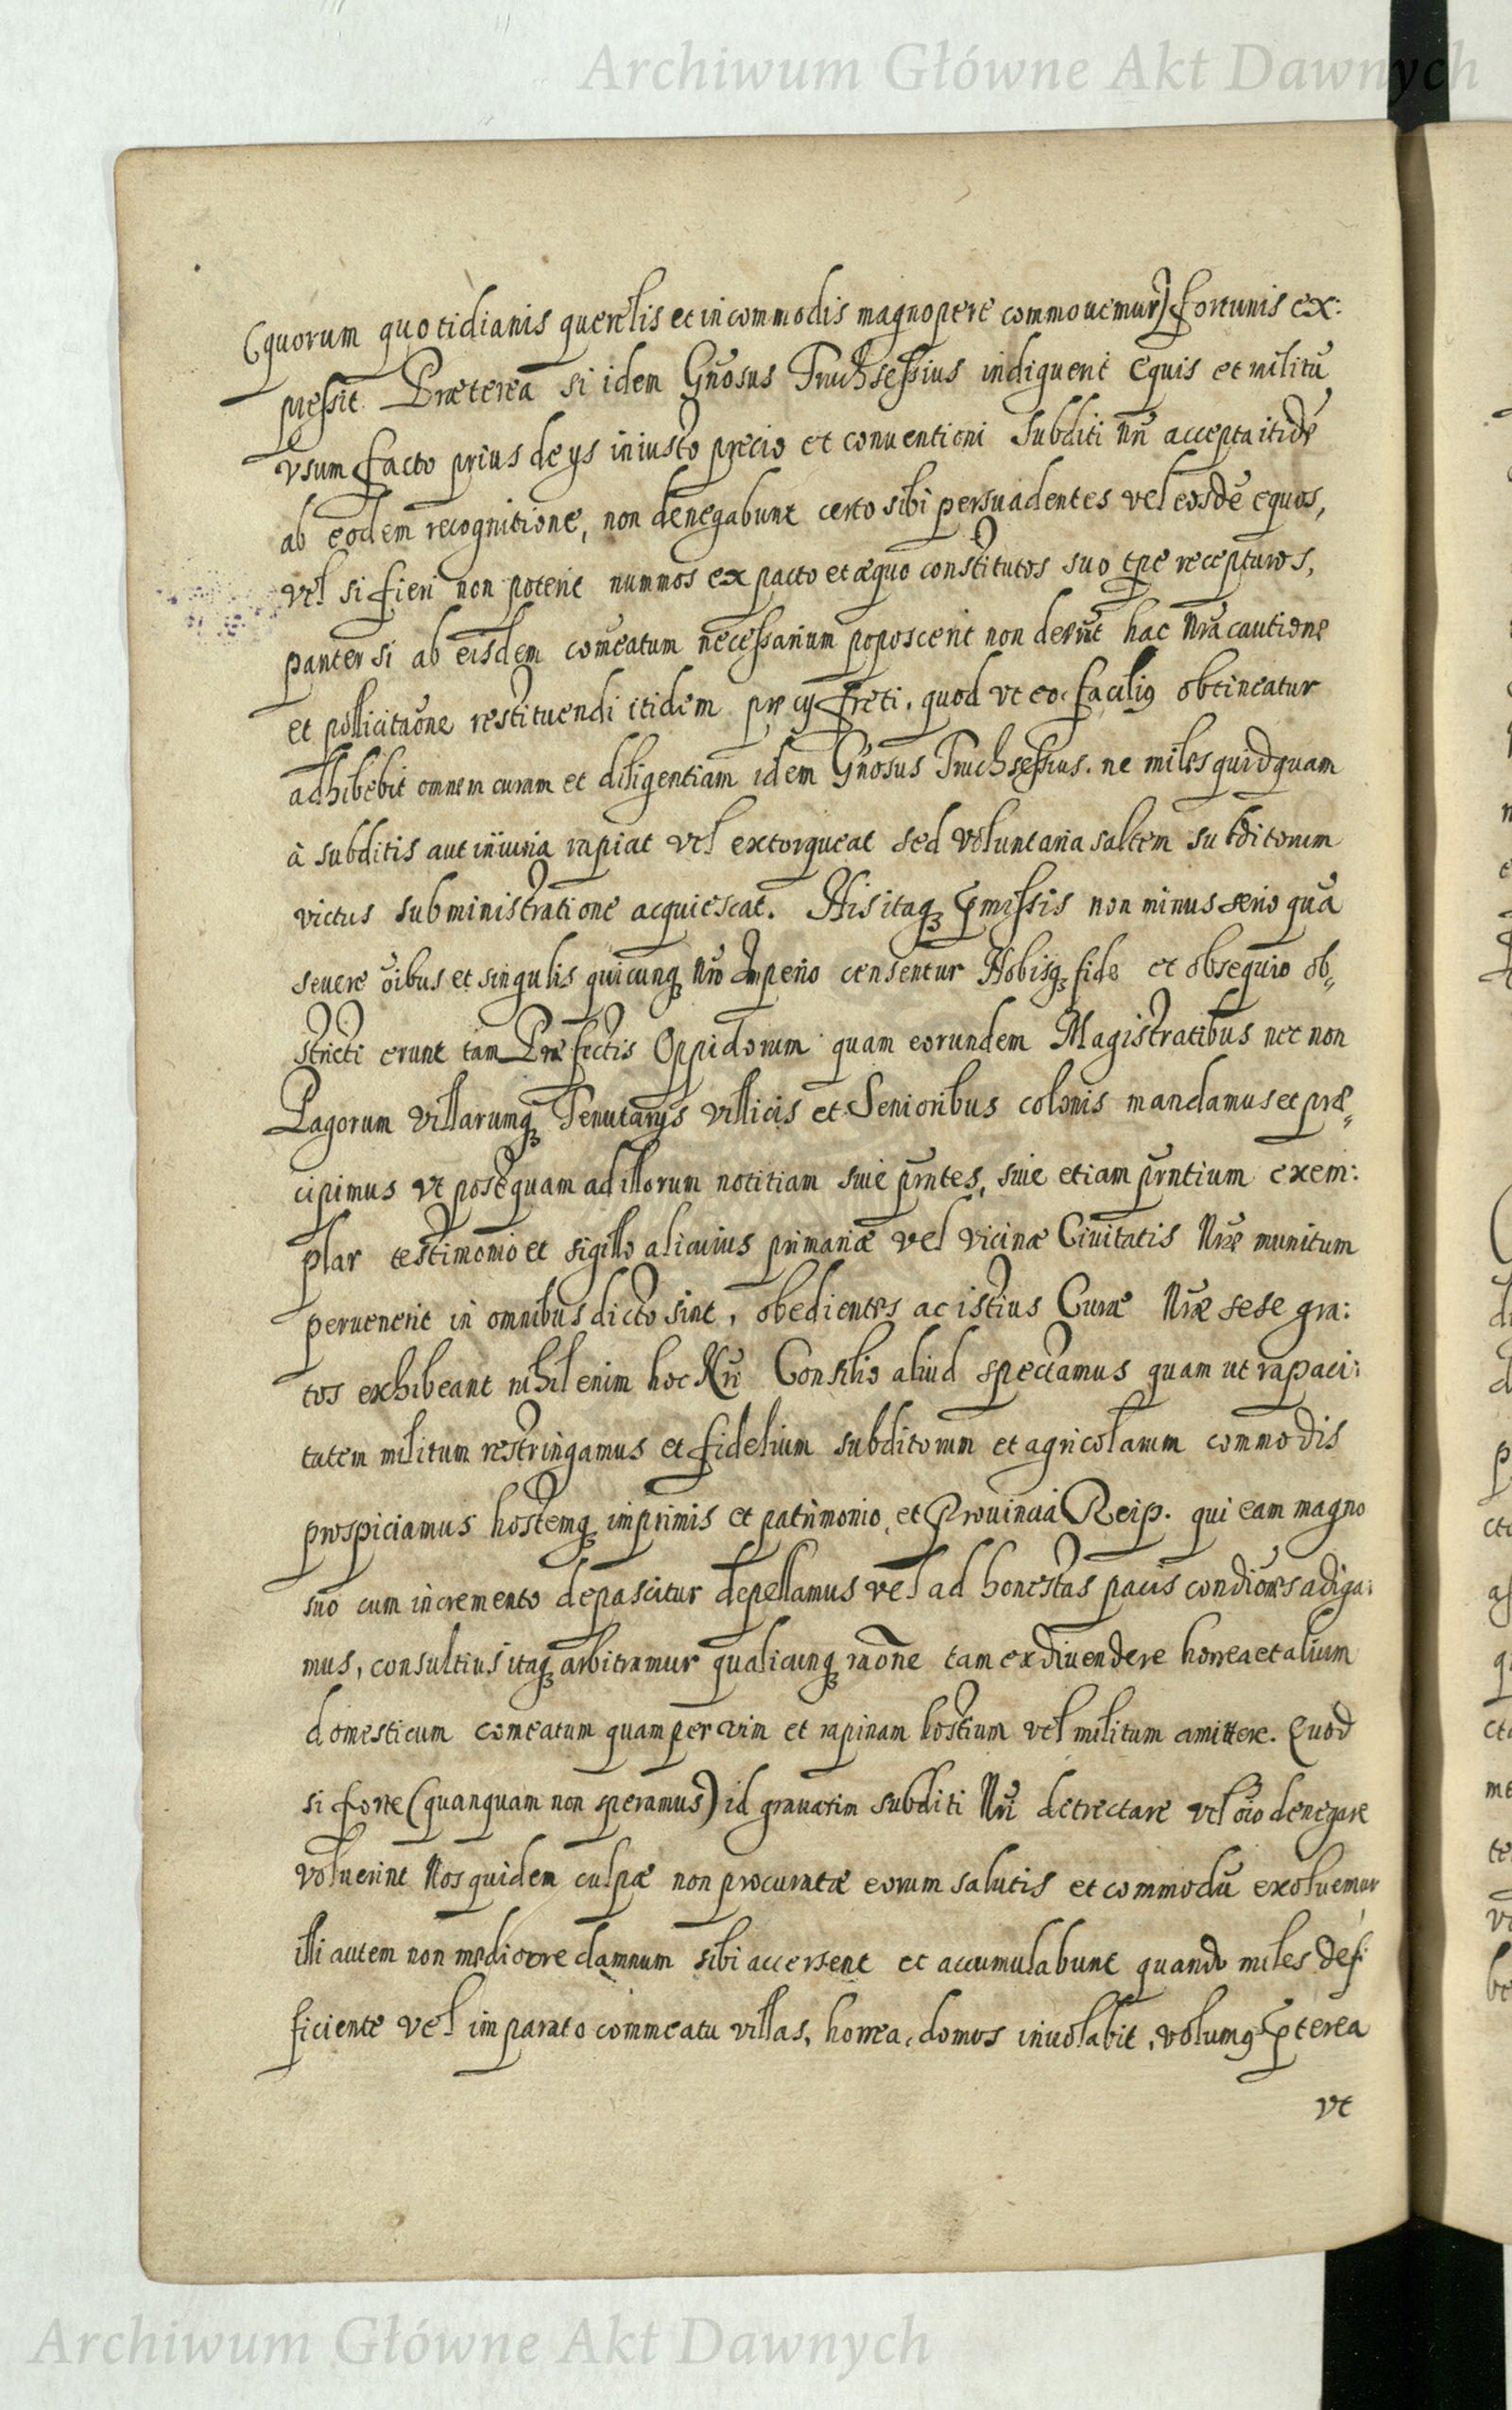 Archiwum Główne Akt Dawnych
(quorum quotidianis querelis et incommodis magnopere commouemur) fortunis ex:
pressit. Præterea si idem Gnosus Truchsessius indiguerit Equis et militū
vsum facto prius de ijs in iusto precio et conuentioni Subditi Nri accepta itidē
ab eodem recognitione, non denegabunt certo sibi persuadentes vel eosdē equos,
vel si fieri non poterit nummos ex pacto et æquo constitutos suo tpe recepturos,
pariter si ab eisdem comeatum necessarium poposcerit non deerūt hac Nra cautione
et pollicitaōne restituendi itidem precij freti, quod vt eo facilius obtineatur
adhibebit omnem curam et diligentiam idem Gnosus Truchsessius. ne miles quidquam
à subditis aut iniuria rapiat vel extorqueat sed voluntaria saltem subditorum
victus subministratione acquiescat. His itaq3 pmissis non minus serio quā
seuere oībus et singulis quicunq3 Nro Imperio censentur Nobisq3 fide et obsequio ob„
stricti erunt tam Præfectis Oppidorum quam eorundem Magistratibus nec non
Pagorum villarumq3 Tenutarijs villicis et Senioribus colonis mandamus et præ„
cipimus vt postquam ad illorum notitiam siue prntes, siue etiam prntium exem:
plar testimonio et sigillo alicuius primariæ vel vicinæ Ciuitatis Nræ munitum
peruenerit in omnibus dicto sint, obedientes ac istius Curæ Nræ sese gra:
tos exhibeant nihil enim hoc Nrī Consilio aliud spectamus quam ut rapaci:
tatem militum restringamus et fidelium subditorum et agricolarum commodis
prospiciamus hostemq3 imprimis et patrimonio, et Prouincia Reip. qui eam magno
suo cum incremento depascitur depellamus vel ad honestas pacis condiōnes adiga:
mus, consultius itaq3 arbitramur qualicunq3 raōne tam ex diuendere horrea et alium
domesticum comeatum quam per vim et rapinam hostium vel militum amittere. Quod
si forte (quanquam non speramus) id grauatim subditi Nri detrectare vel oīo denegare
voluerint Nos quidem culpæ non procuratæ eorum salutis et commodū exoluemur
illi autem non mediocre damnum sibi accersent et accumulabunt quando miles def:
ficiente vel imparato commeatu villas, horrea, domos inuolabit, volumus pterea
vt
Archiwum Główne Akt Dawnych